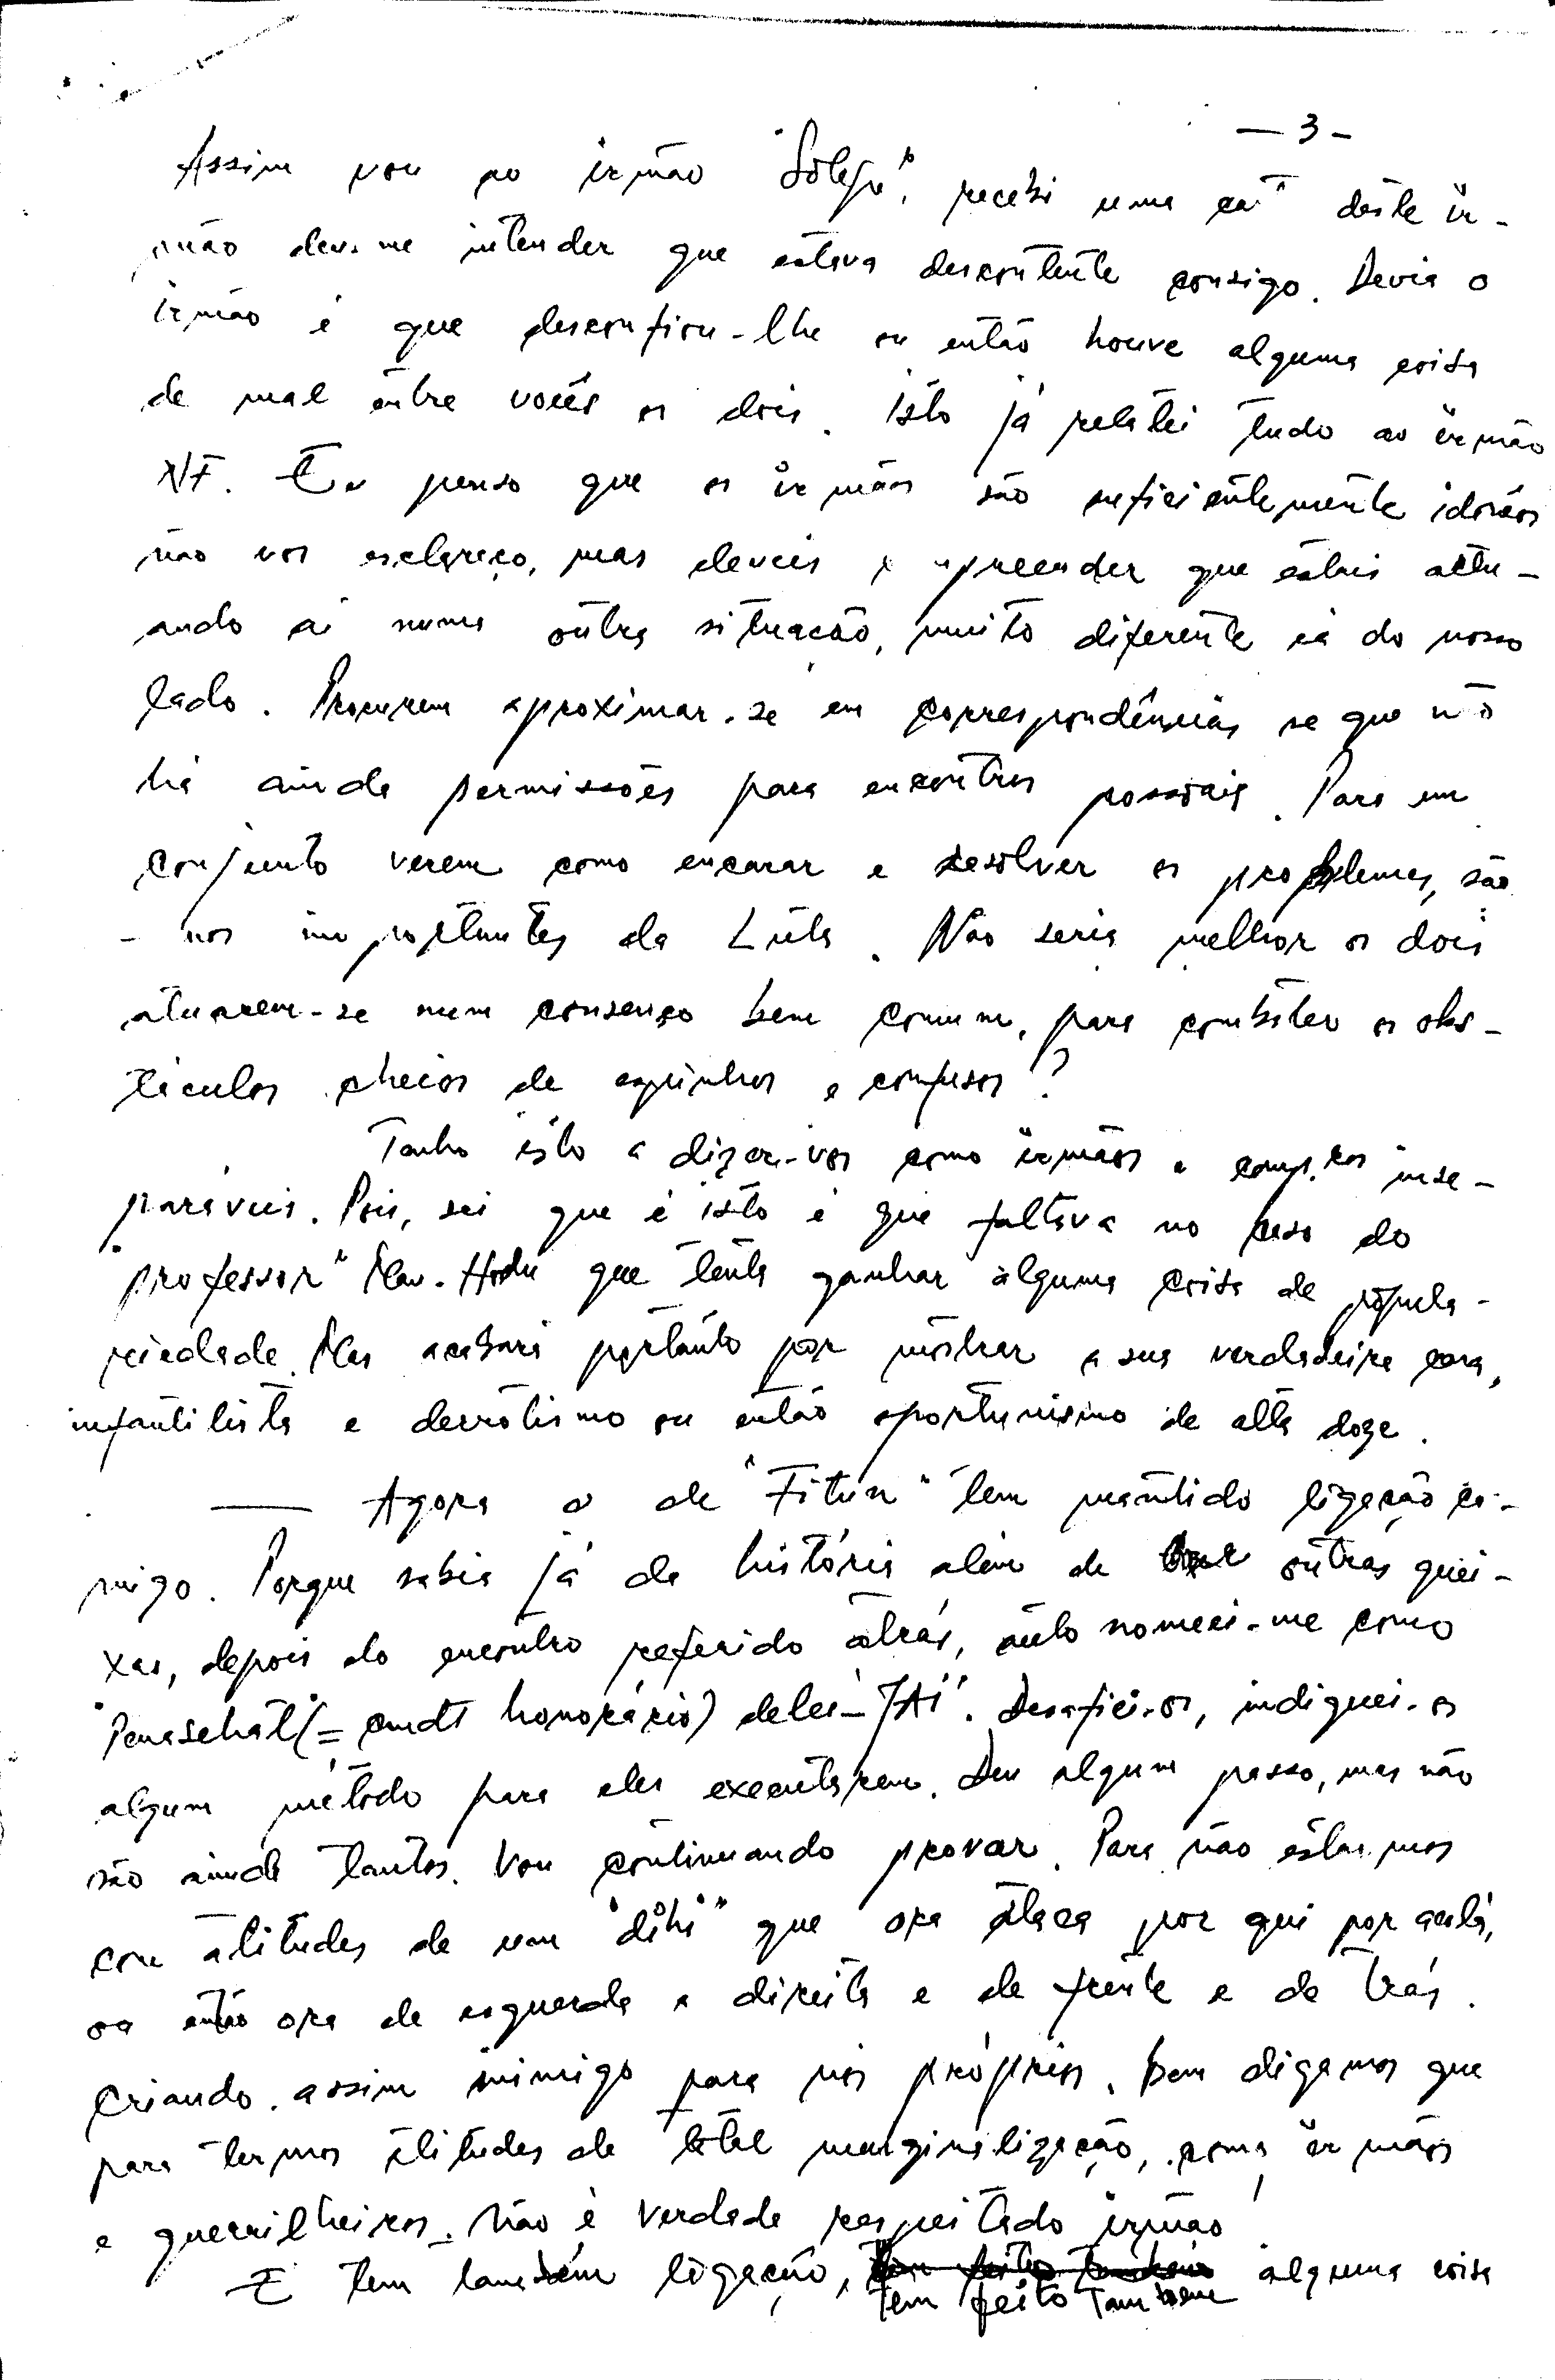 — 3 -
Assim vou ao irmão "Solesu", recebi uma ca deste ir-
mão deu-me intender que estava descontente consigo. Devia o
irmão é que desconfiou-lhe ou então houve alguma coisa
de mal entre vocês os dois. Isto já relatei tudo ao irmão
NF. Eu penso que os irmãos são suficientemente idonéos
não vos esclareço, mas deveis compreender que estais actu-
ando aí numa outra situação, muito diferente cá do nosso
lado. Procurem aproximar-se em correspondências se que não
há ainda permissões para encontros possoais. Para em
conjunto verem como encarar e resolver os problemas, são
- nos importantes da Luta. Não seria melhor os dois
atuarem-se num consenço bem comum, para combater os obs-
táculos cheios de espinhos e confusos?
Tenho isto a dizer-vos como irmãos e comp.ros inse-
paráveis. Pois, sei que é isto é que faltava no caso do
"professor" Mau-Hodu que tenta ganhar alguma coisa de popula-
riedade. Mas acabará portanto por mostrar a sua verdadeira cara,
infantilista e derrotismo ou então oportunismo de alta doze.
— Agora o de "Fitun" tem mantido ligação co-
migo. Porque sabia já da história além de outras quei-
xas, depois do encontro referido atrás, auto nomeei-me como
"Penasehat" (= cmdt honorário) deles - "JAÍ". Desafiei-os, indiquei-os
algum método para eles executarem. Deu algum passo, mas não
são ainda tantos. Vou continuando provar. Para não estarmos
com atitudes de um "dihi" que ora ataca por qui por aculá,
ou então ora de esquerda a direita e de frente e de trás.
Criando assim inimigo para nós próprios. Bem digamos que
para termos atitudes de total marginalização, como irmãos
e guerrilheiros. Não é verdade respeitado irmão
E tem também ligação, tem feito também alguma coisa